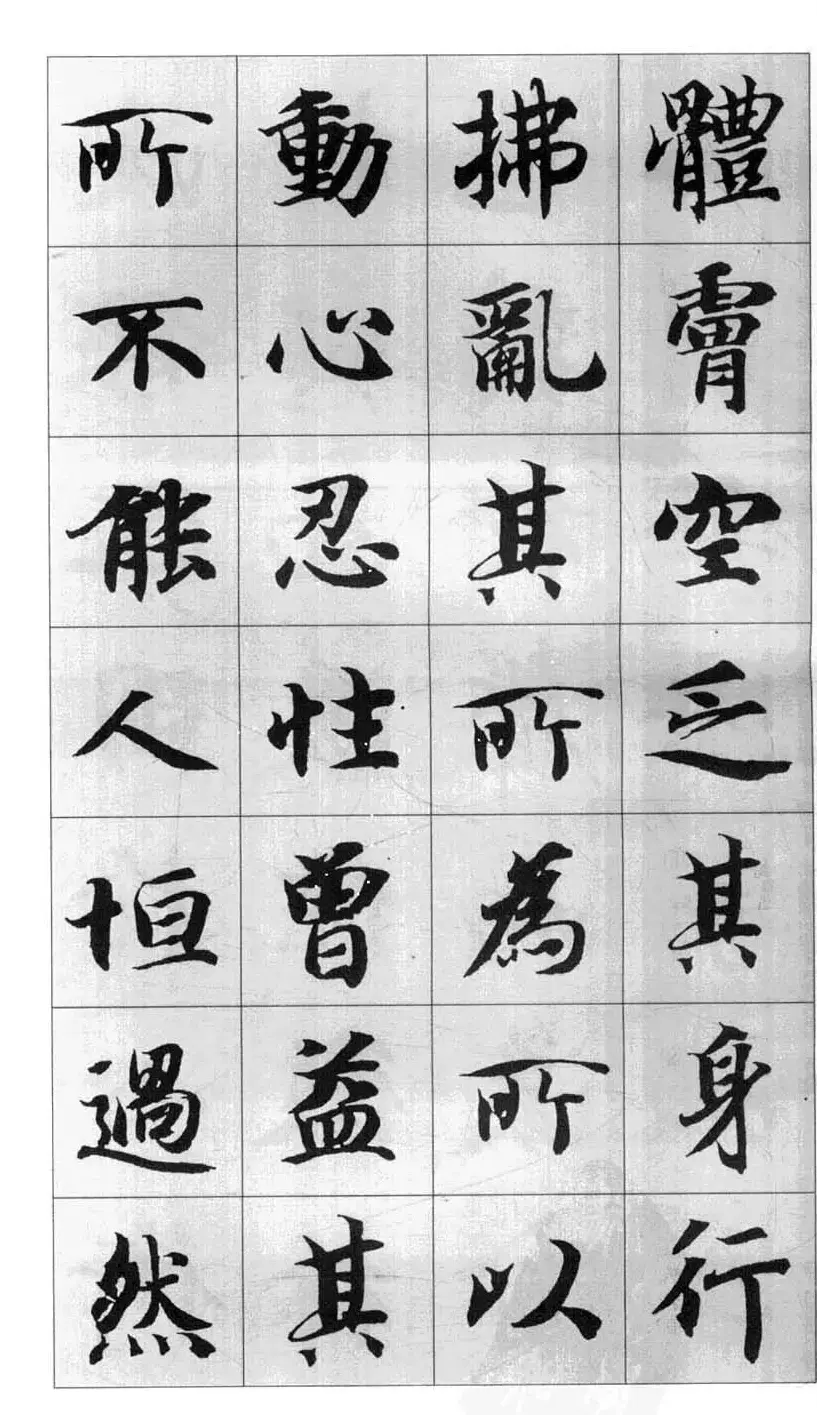 體膚空乏其身行
拂亂其所為所以
動心忍性曾益其
所不能人恒過然